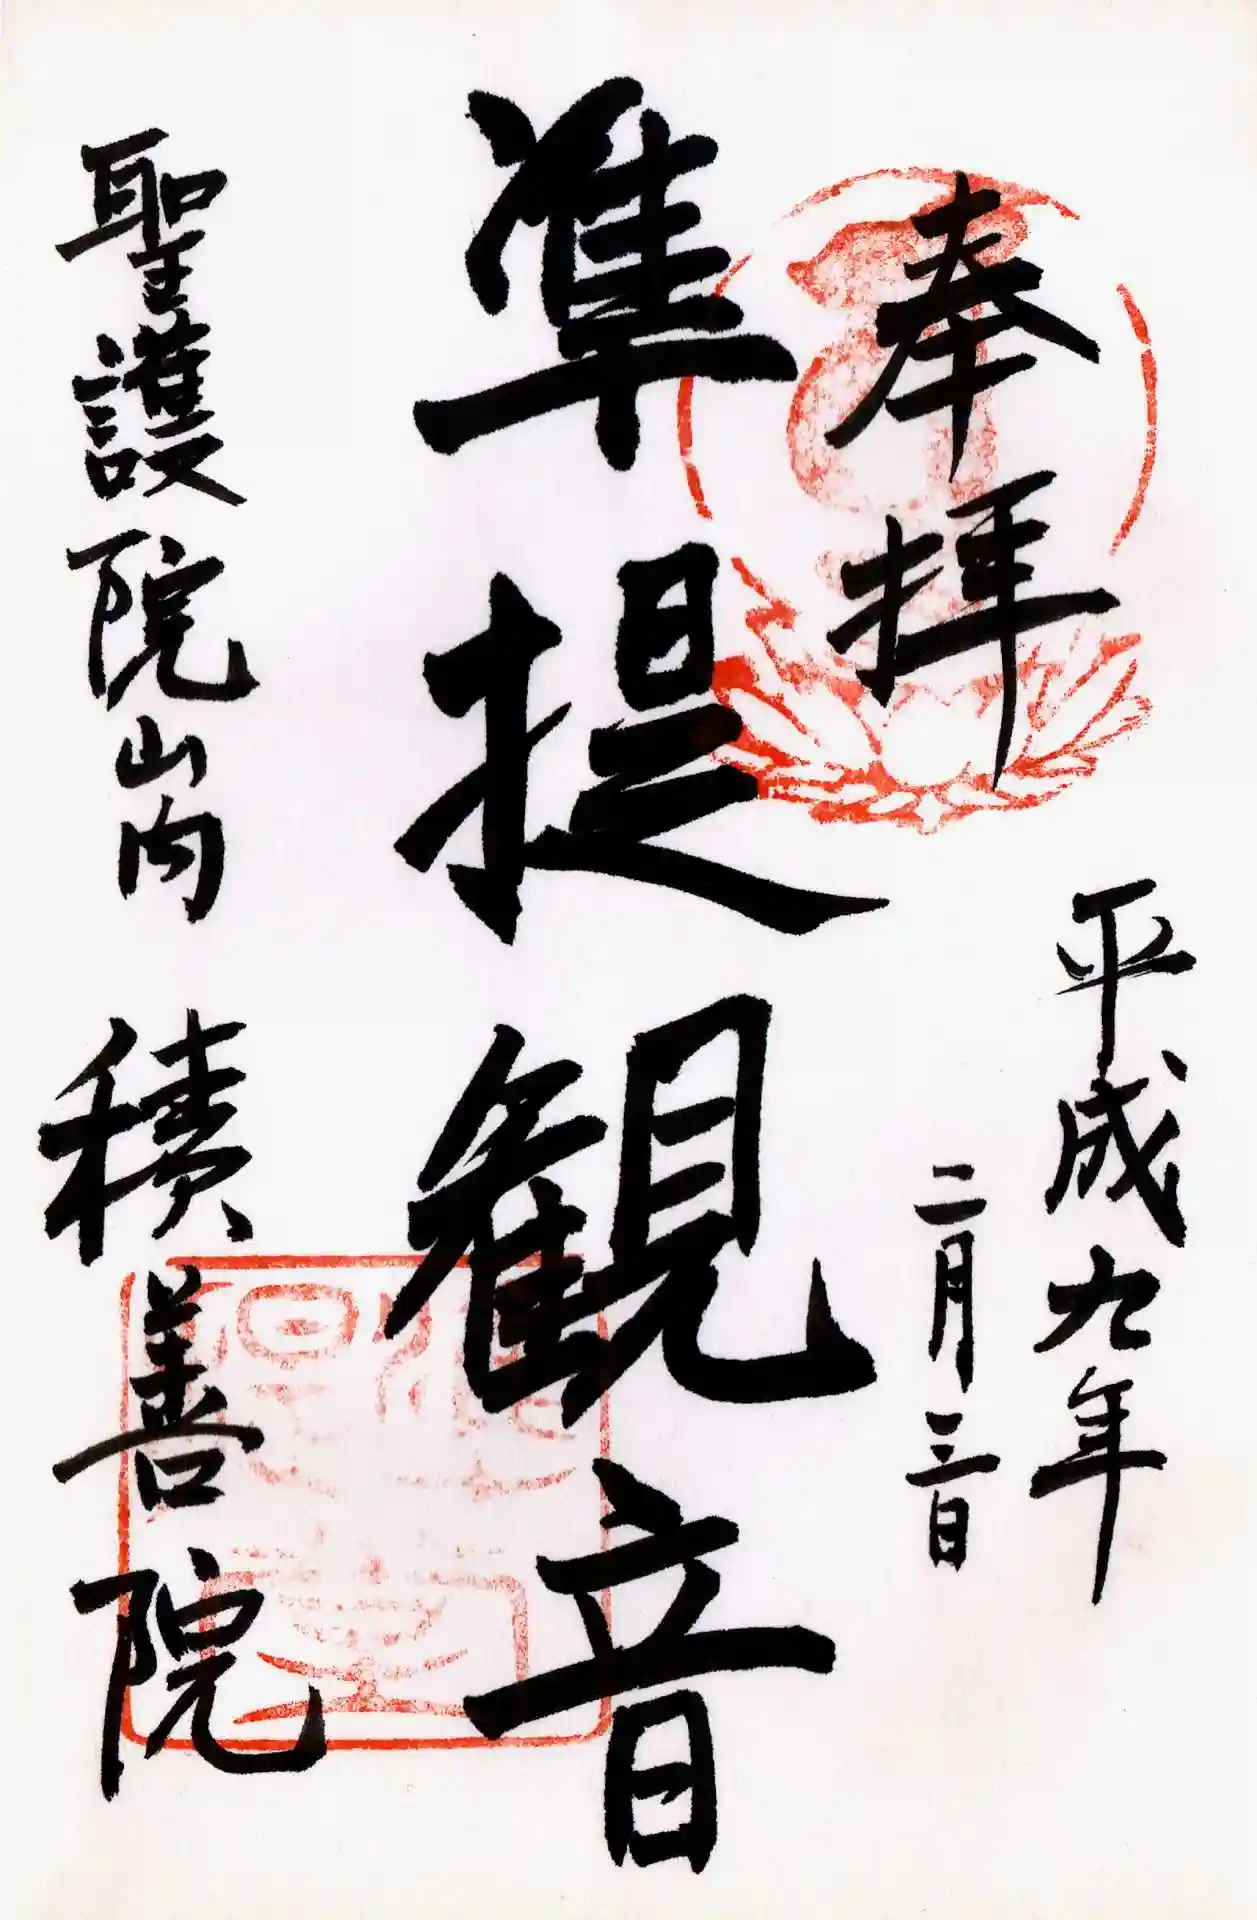 奉拝
平成九年
二月三日
準提観音
聖護院山内 積善院